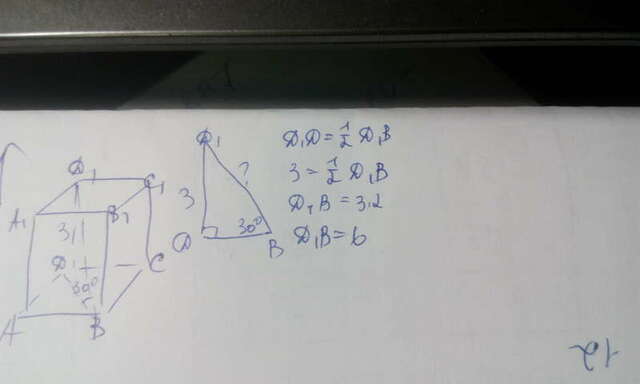 D₁
C₁
A₁
B₁
3
D
30°
C
A
B
D₁
?
3
30°
D
B
D₁D = ½ D₁B
3 = ½ D₁B
D₁B = 3.2
D₁B = 6
12